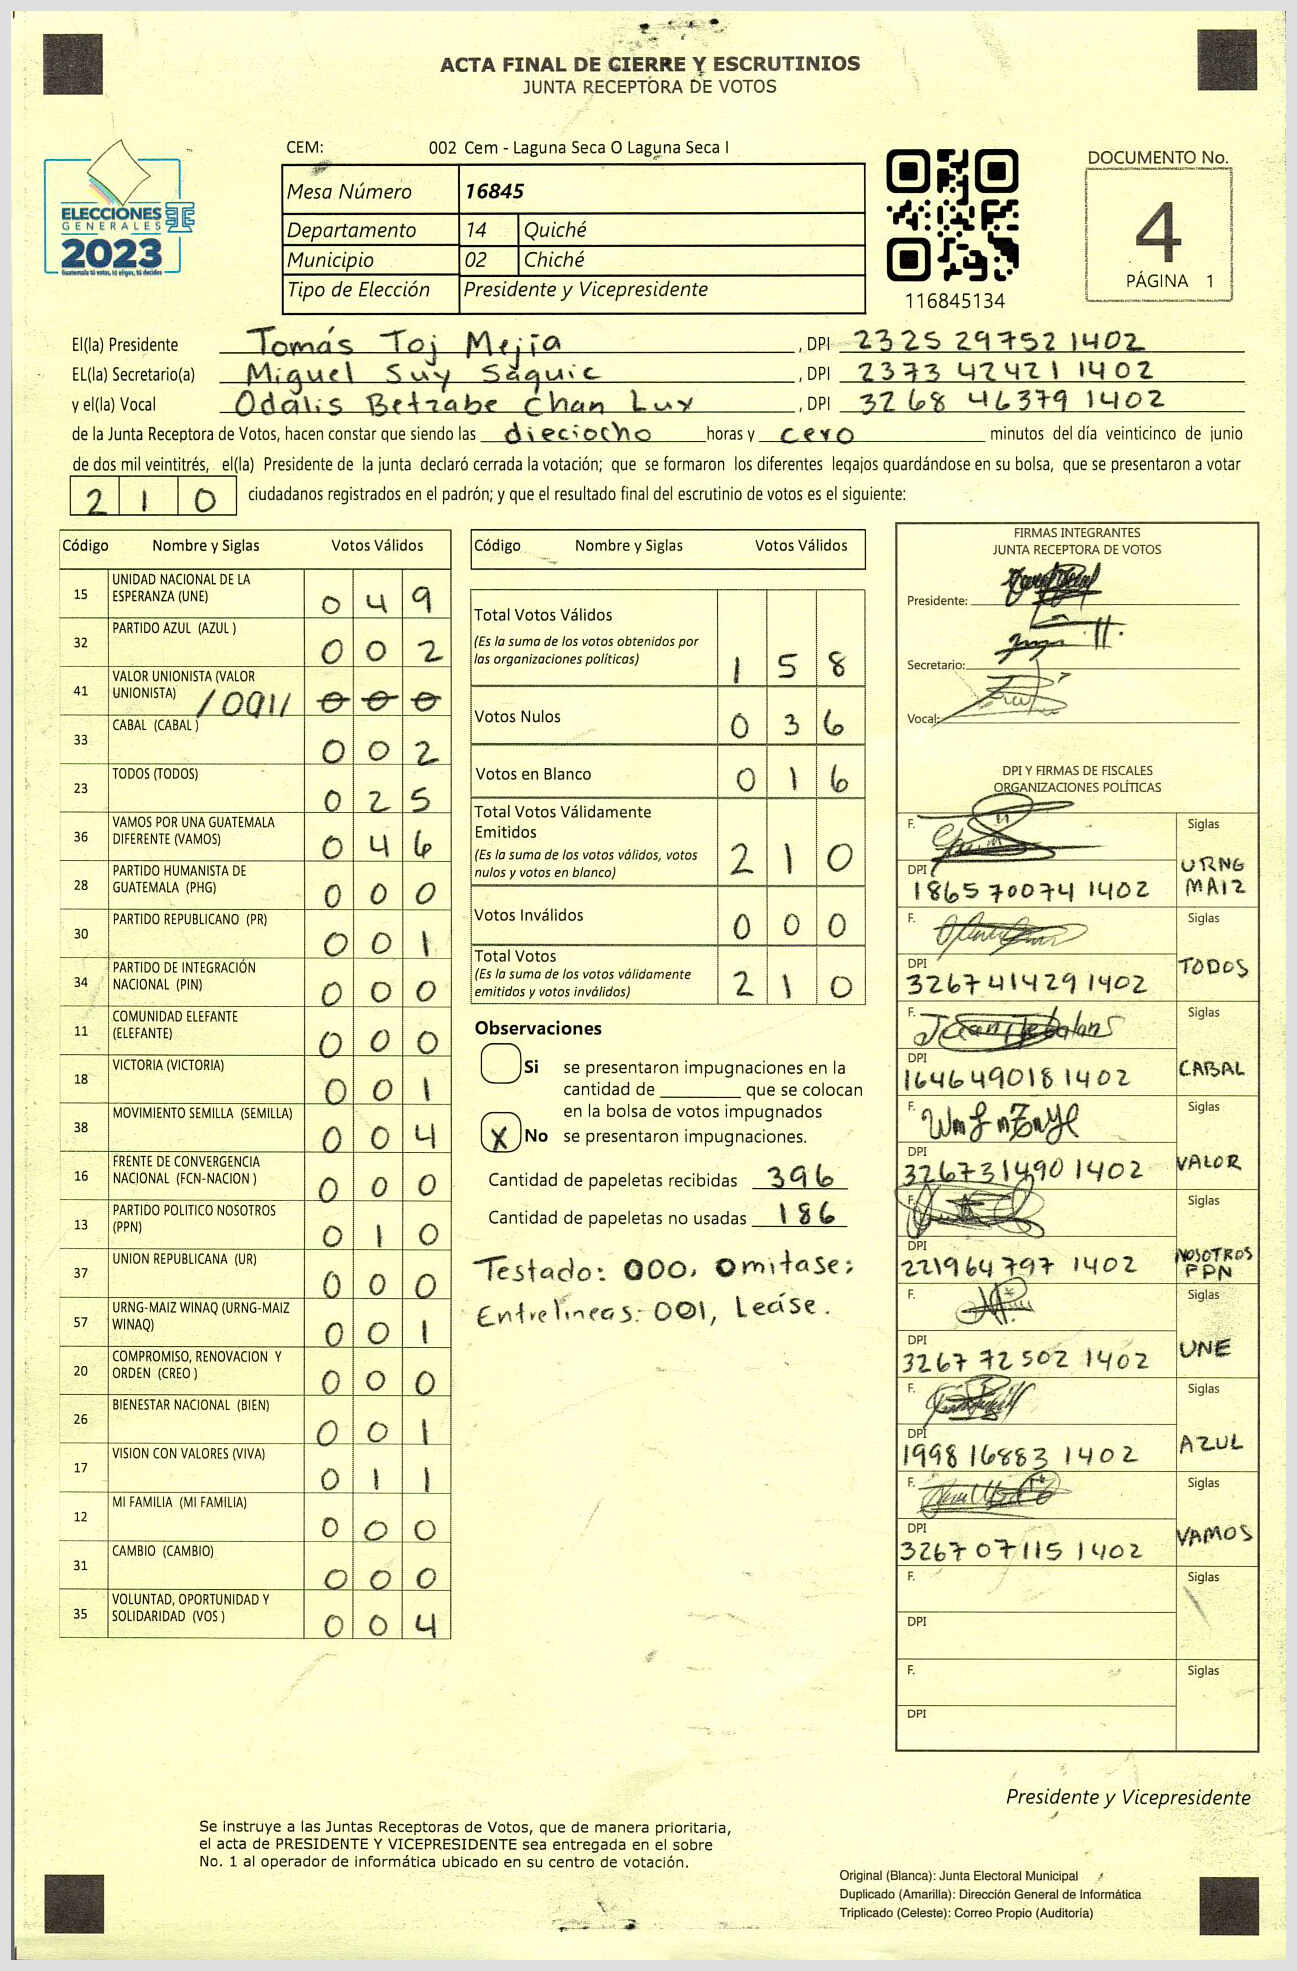 ACTA FINAL DE CIERRE Y ESCRUTINIOS
JUNTA RECEPTORA DE VOTOS
ELECCIONES
GENERALES
2023
Guatemala tú votas, tú eliges, tú decides
CEM: 002 Cem - Laguna Seca O Laguna Seca I
Mesa Número 16845
Departamento 14 Quiché
Municipio 02 Chiché
Tipo de Elección Presidente y Vicepresidente
116845134
DOCUMENTO No.
4
PÁGINA 1
El(la) Presidente Tomás Toj Mejía , DPI 2325 29752 1402
EL(la) Secretario(a) Miguel Suy Saquic , DPI 2373 42421 1402
y el(la) Vocal Odalis Betzabe Chan Lux , DPI 3268 46379 1402
de la Junta Receptora de Votos, hacen constar que siendo las dieciocho horas y cero minutos del día veinticinco de junio
de dos mil veintitrés, el(la) Presidente de la junta declaró cerrada la votación; que se formaron los diferentes legajos guardándose en su bolsa, que se presentaron a votar
2 1 0 ciudadanos registrados en el padrón; y que el resultado final del escrutinio de votos es el siguiente:
Código Nombre y Siglas Votos Válidos
15 UNIDAD NACIONAL DE LA ESPERANZA (UNE) 0 4 9
32 PARTIDO AZUL (AZUL ) 0 0 2
41 VALOR UNIONISTA (VALOR UNIONISTA) 0 0 0
33 CABAL (CABAL ) 0 0 2
23 TODOS (TODOS) 0 2 5
36 VAMOS POR UNA GUATEMALA DIFERENTE (VAMOS) 0 4 6
28 PARTIDO HUMANISTA DE GUATEMALA (PHG) 0 0 0
30 PARTIDO REPUBLICANO (PR) 0 0 1
34 PARTIDO DE INTEGRACIÓN NACIONAL (PIN) 0 0 0
11 COMUNIDAD ELEFANTE (ELEFANTE) 0 0 0
18 VICTORIA (VICTORIA) 0 0 1
38 MOVIMIENTO SEMILLA (SEMILLA) 0 0 4
16 FRENTE DE CONVERGENCIA NACIONAL (FCN-NACION ) 0 0 0
13 PARTIDO POLITICO NOSOTROS (PPN) 0 1 0
37 UNION REPUBLICANA (UR) 0 0 0
57 URNG-MAIZ WINAQ (URNG-MAIZ WINAQ) 0 0 1
20 COMPROMISO, RENOVACION Y ORDEN (CREO ) 0 0 0
26 BIENESTAR NACIONAL (BIEN) 0 0 1
17 VISION CON VALORES (VIVA) 0 1 1
12 MI FAMILIA (MI FAMILIA) 0 0 0
31 CAMBIO (CAMBIO) 0 0 0
35 VOLUNTAD, OPORTUNIDAD Y SOLIDARIDAD (VOS ) 0 0 4
Código Nombre y Siglas Votos Válidos
Total Votos Válidos
(Es la suma de los votos obtenidos por
las organizaciones políticas) 1 5 8
Votos Nulos 0 3 6
Votos en Blanco 0 1 6
Total Votos Válidamente
Emitidos
(Es la suma de los votos válidos, votos
nulos y votos en blanco) 2 1 0
Votos Inválidos 0 0 0
Total Votos
(Es la suma de los votos válidamente
emitidos y votos inválidos) 2 1 0
Observaciones
Si se presentaron impugnaciones en la
cantidad de ________ que se colocan
en la bolsa de votos impugnados
X No se presentaron impugnaciones.
Cantidad de papeletas recibidas 396
Cantidad de papeletas no usadas 186
Testado: 000, Omitase;
Entrelineas: 001, Leáse.
FIRMAS INTEGRANTES
JUNTA RECEPTORA DE VOTOS
Presidente:
Secretario:
Vocal:
DPI Y FIRMAS DE FISCALES
ORGANIZACIONES POLÍTICAS
F. Siglas
URNG
MAIZ
DPI 1865 70074 1402
F. Siglas
TODOS
DPI 3267 41429 1402
F. Siglas
CABAL
DPI 1646 49018 1402
F. Siglas
VALOR
DPI 3267 31490 1402
F. Siglas
NOSOTROS
PPN
DPI 221964797 1402
F. Siglas
UNE
DPI 3267 72502 1402
F. Siglas
AZUL
DPI 1998 16883 1402
F. Siglas
VAMOS
DPI 3267 07115 1402
F. Siglas
DPI
F. Siglas
DPI
Presidente y Vicepresidente
Se instruye a las Juntas Receptoras de Votos, que de manera prioritaria,
el acta de PRESIDENTE Y VICEPRESIDENTE sea entregada en el sobre
No. 1 al operador de informática ubicado en su centro de votación.
Original (Blanca): Junta Electoral Municipal
Duplicado (Amarilla): Dirección General de Informática
Triplicado (Celeste): Correo Propio (Auditoría)